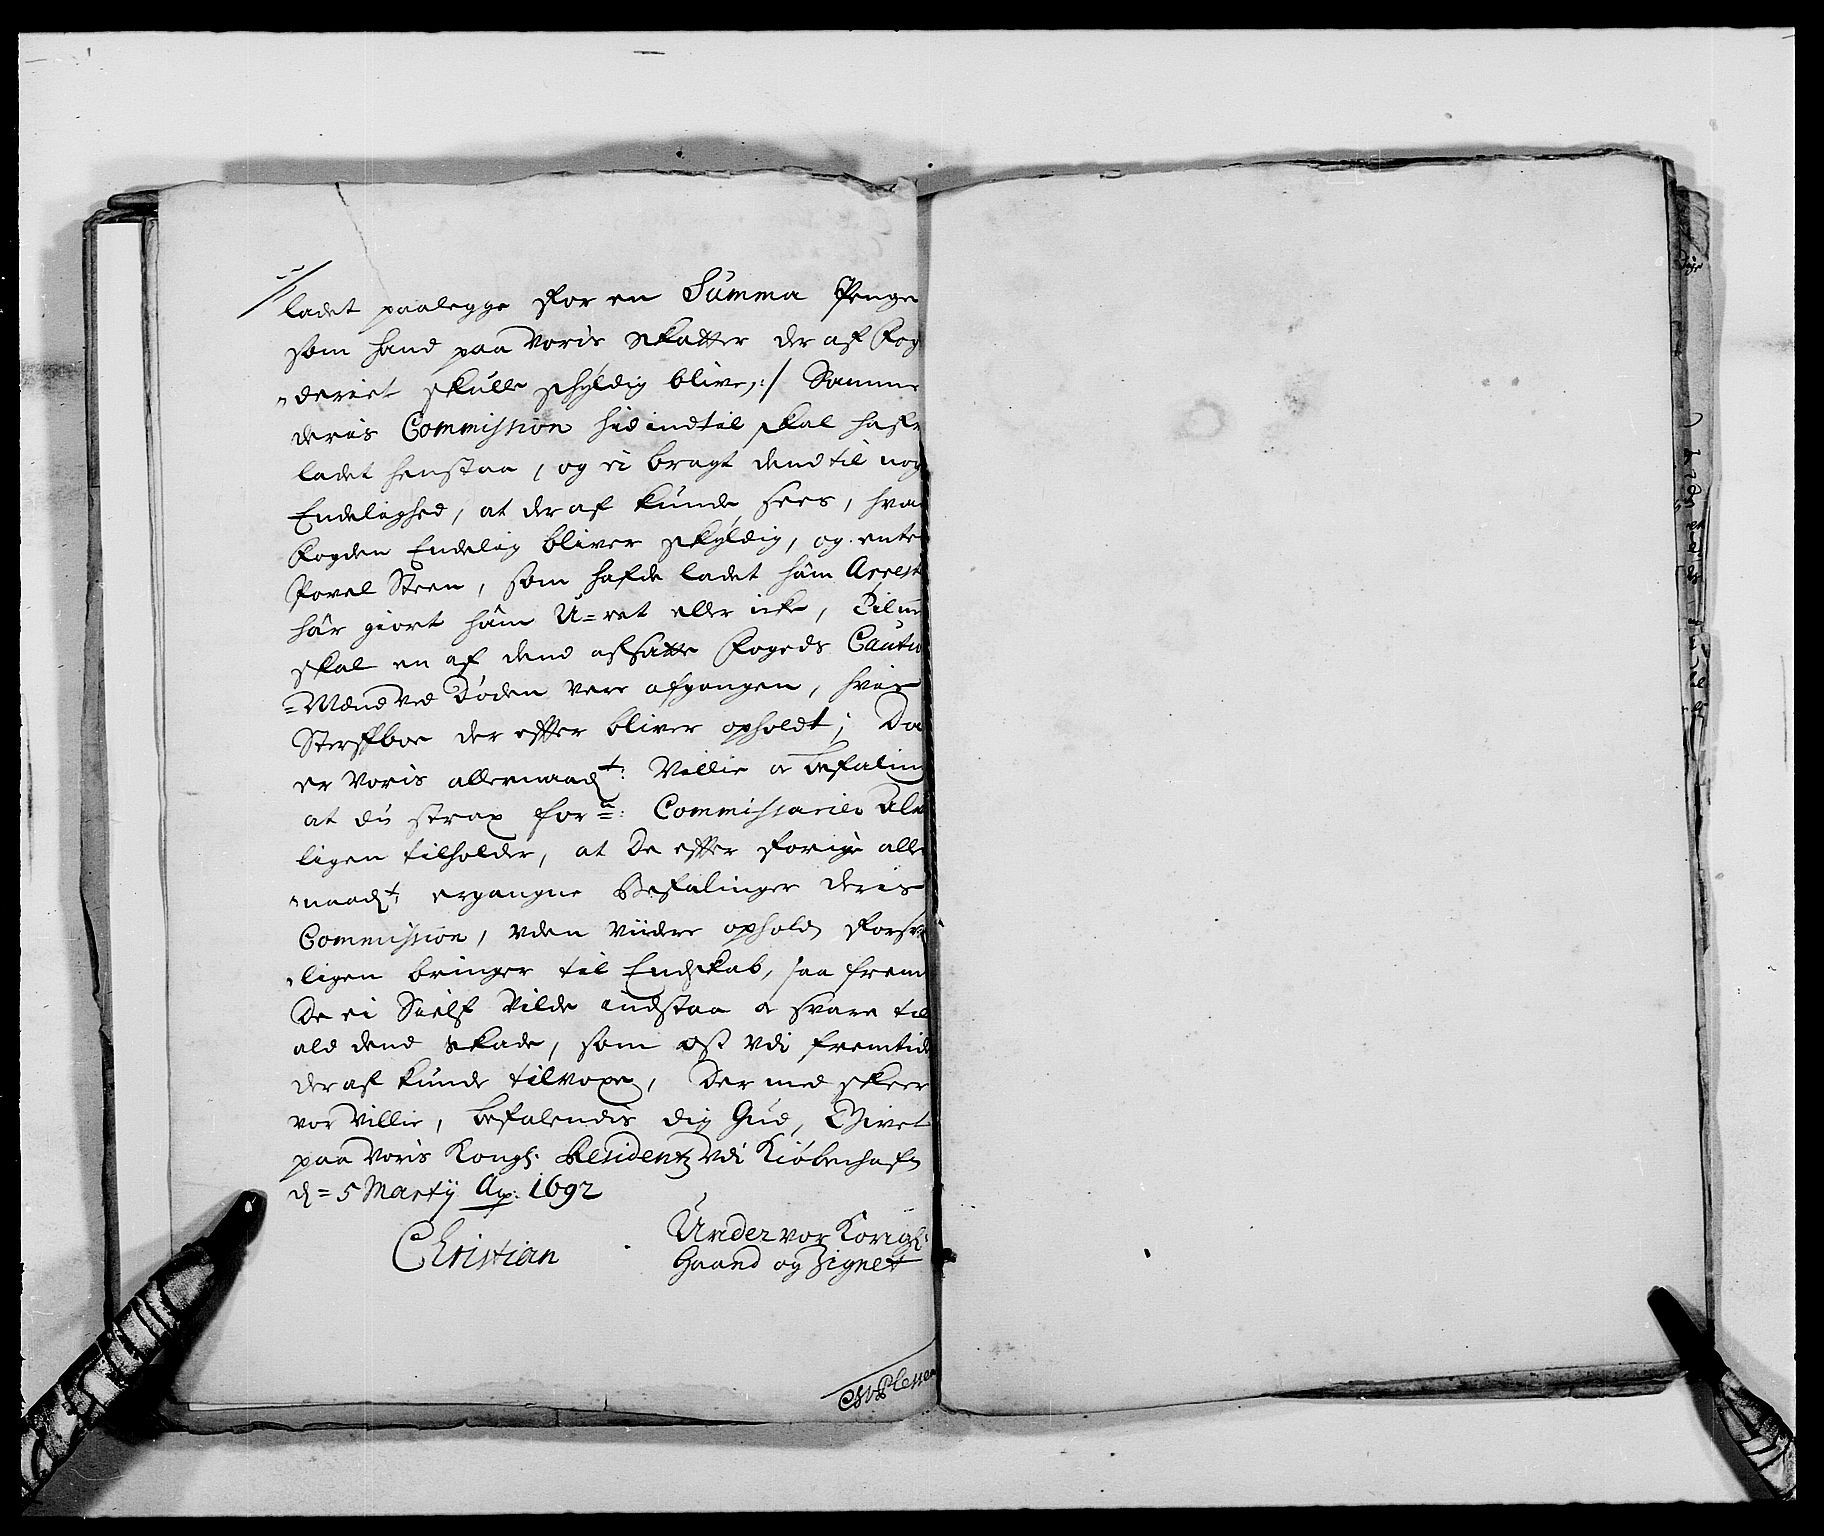 ladet paalegge for en Summa Penge
som hand paa Voris Skatter der af Fog
deriet skulle schyldig blive,:/ Samme
deris Commission hid indtil skal hafe
ladet henstaa, og ei bragt dend til nog
Endelighed, at der af kunde sees, hva
Fogden Endelig bliver skyldig, og ente
Povel Steen, som hafde ladet ham Arrest
hâr giort ham U=ret eller icke,
skal en af dend afsatte Fogeds Cautio
=Mænd ved Døden vere afgangen, hvis
Sterfboe der effter bliver opholdt; Da
er Voris allernaadt: Villie oc befaling
at du strax forne: Commissarier Alv
ligen tilholder, at De effter forige aller
naadt: ergangne Befalinger deris
Commission, uden viidere ophold
ligen bringer til Endskab, saa frem
De ei Sielf vilde indstaa oc svare til
ald dend skade, som os udi fremtide
der af kunde tilvoxe, Der med skeer
vor Villie, befalendis dig Gud, Givet
paa Voris Kongl: Residentz udi Kiøbenhafn
d= 5 Martij Ao: 1692
Christian
Under vor Kongl:
Haand og Zignet